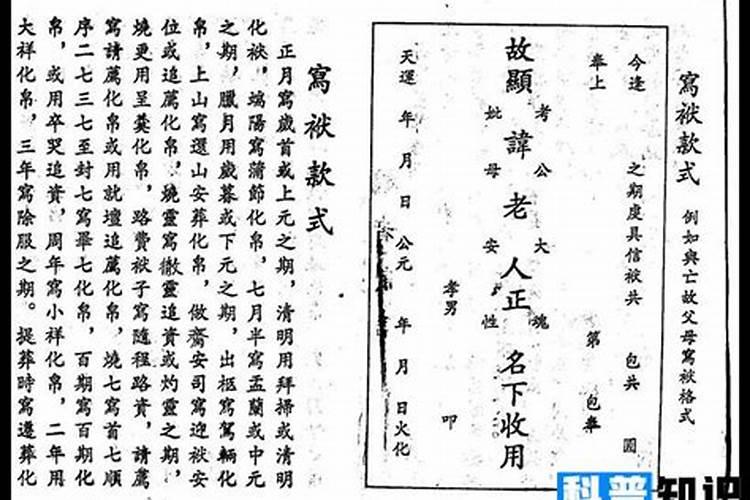 寫袱款式
例如與亡故父母寫袱格式
今逢 之期虔具信袱共 包共 圓
奉上 第 包奉
考 公 大 魂
故顯 諱 老 人正 名下收用
妣 母 安 性
孝男 叩
天運 年 月 日 公元 年 月 日火化
寫袱款式
正月寫歲首或上元之期,清明用拜掃或清明
化袱,端陽寫蒲節化帛,七月半寫盂蘭或中元
之期,臘月用歲暮或下元之期,出柩寫駕輀化
帛,上山寫還山安葬化帛,做齋安司寫迎袱安
位或追薦化帛,燒靈寫撤靈追資或灼靈之期,
燒更用呈羹化帛,路費袱子寫隨程路資,請薦
寫請薦化帛或用就壇追薦化帛,燒七寫首七順
序二七三七至封七寫畢七化帛,百期寫百期化
帛,或用卒哭追資,周年寫小祥化帛,二年用
大祥化帛,三年寫除服之期。提葬時寫遷葬化
科普知识